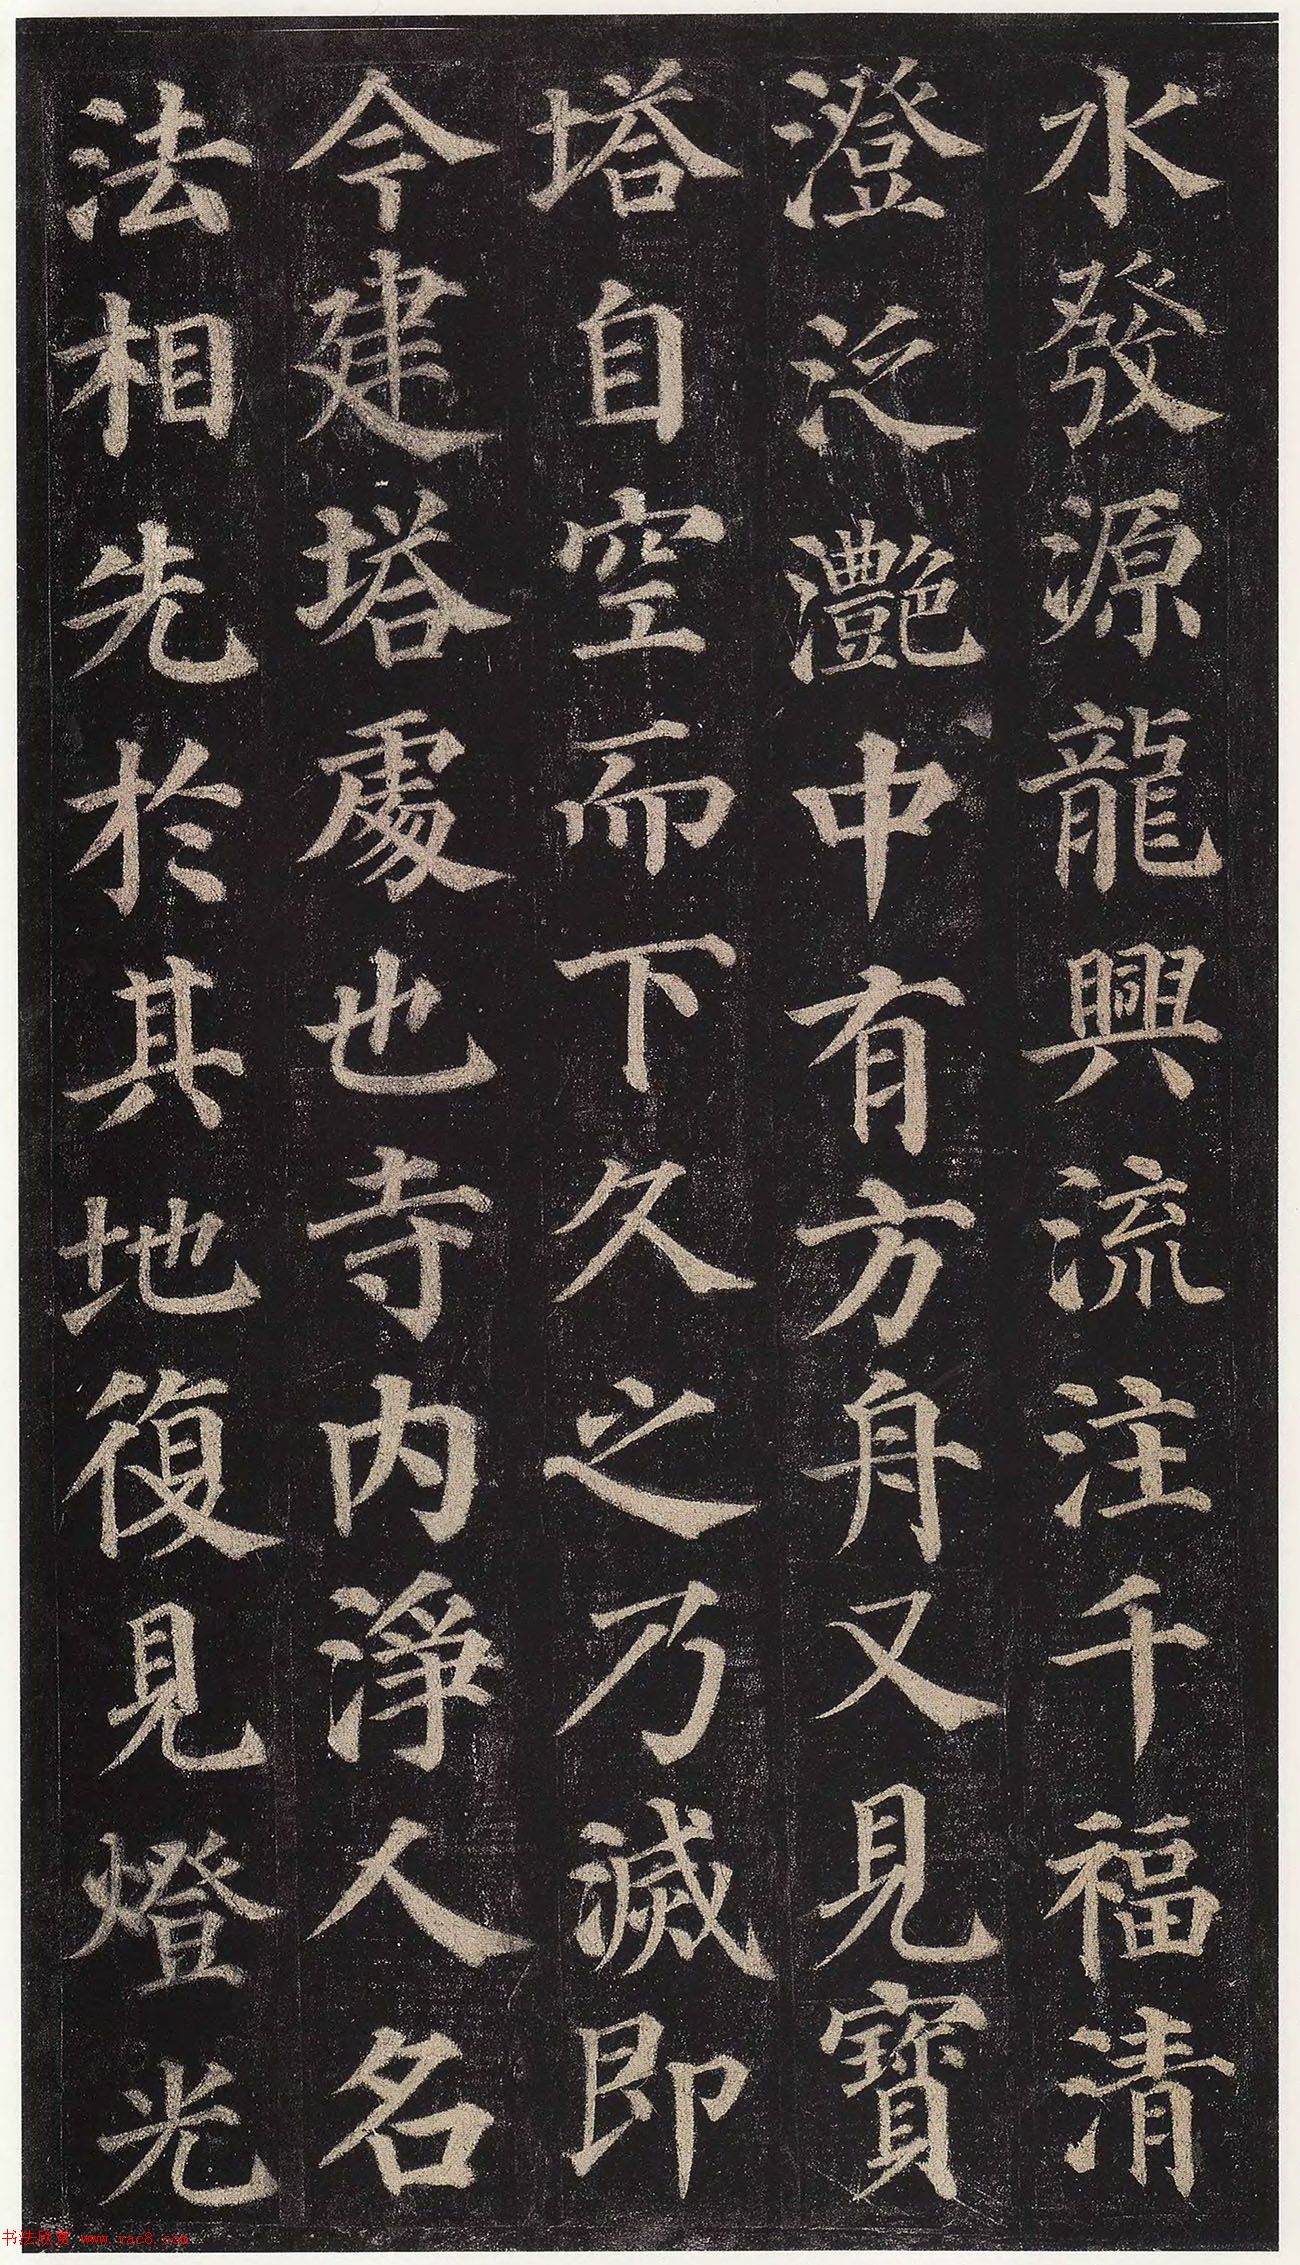 水發源龍興流注千福清
澄泛灩中有方舟又見寶
塔自空而下久之乃滅即
今建塔處也寺內淨人名
法相先於其地復見燈光
书法欣赏 www.yac8.com